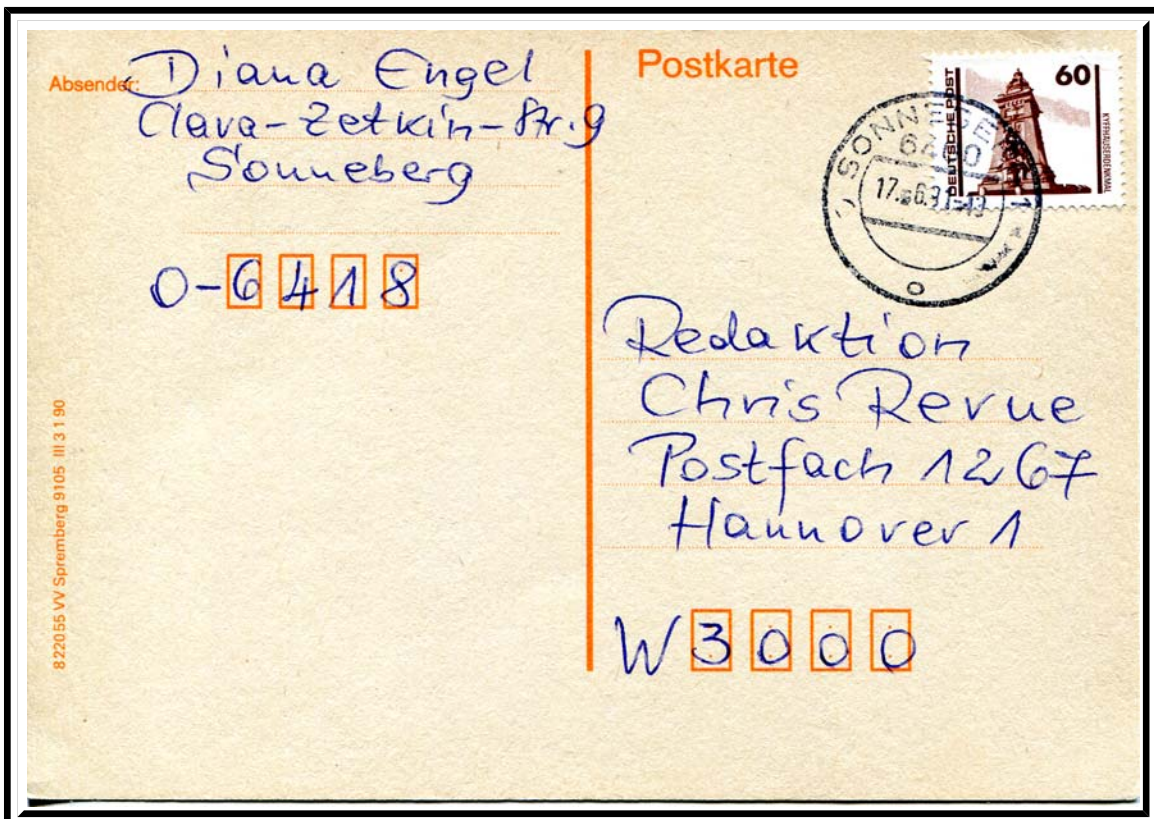 Absender: Diana Engel
Clara-Zetkin-Str. 9
Sonneberg
O-6418
822055 VV Spremberg 9105 III 3 1 90
Postkarte
DEUTSCHE POST
60
KYFFHÄUSERDENKMAL
SONNEBERG 1
17.-6.91-
Redaktion
Chris Revue
Postfach 1267
Hannover 1
W 3000